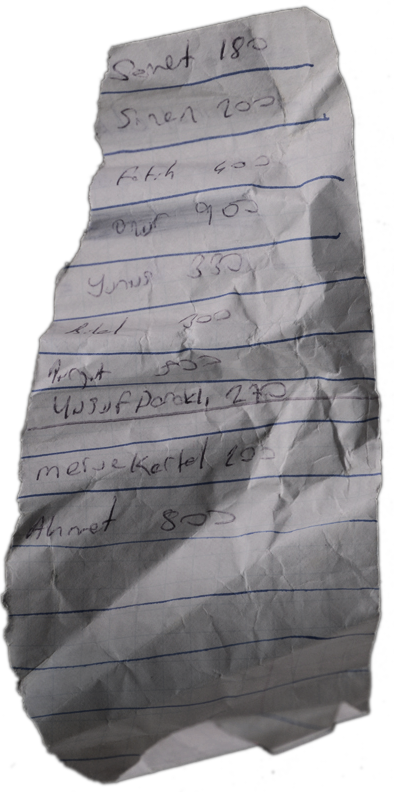 Samet 180
Sinan 200
Fatih 400
Onur 900
Yunus 330
300
Turgut 800
Yusuf Daraklı 270
merve Kartal 200
Ahmet 800